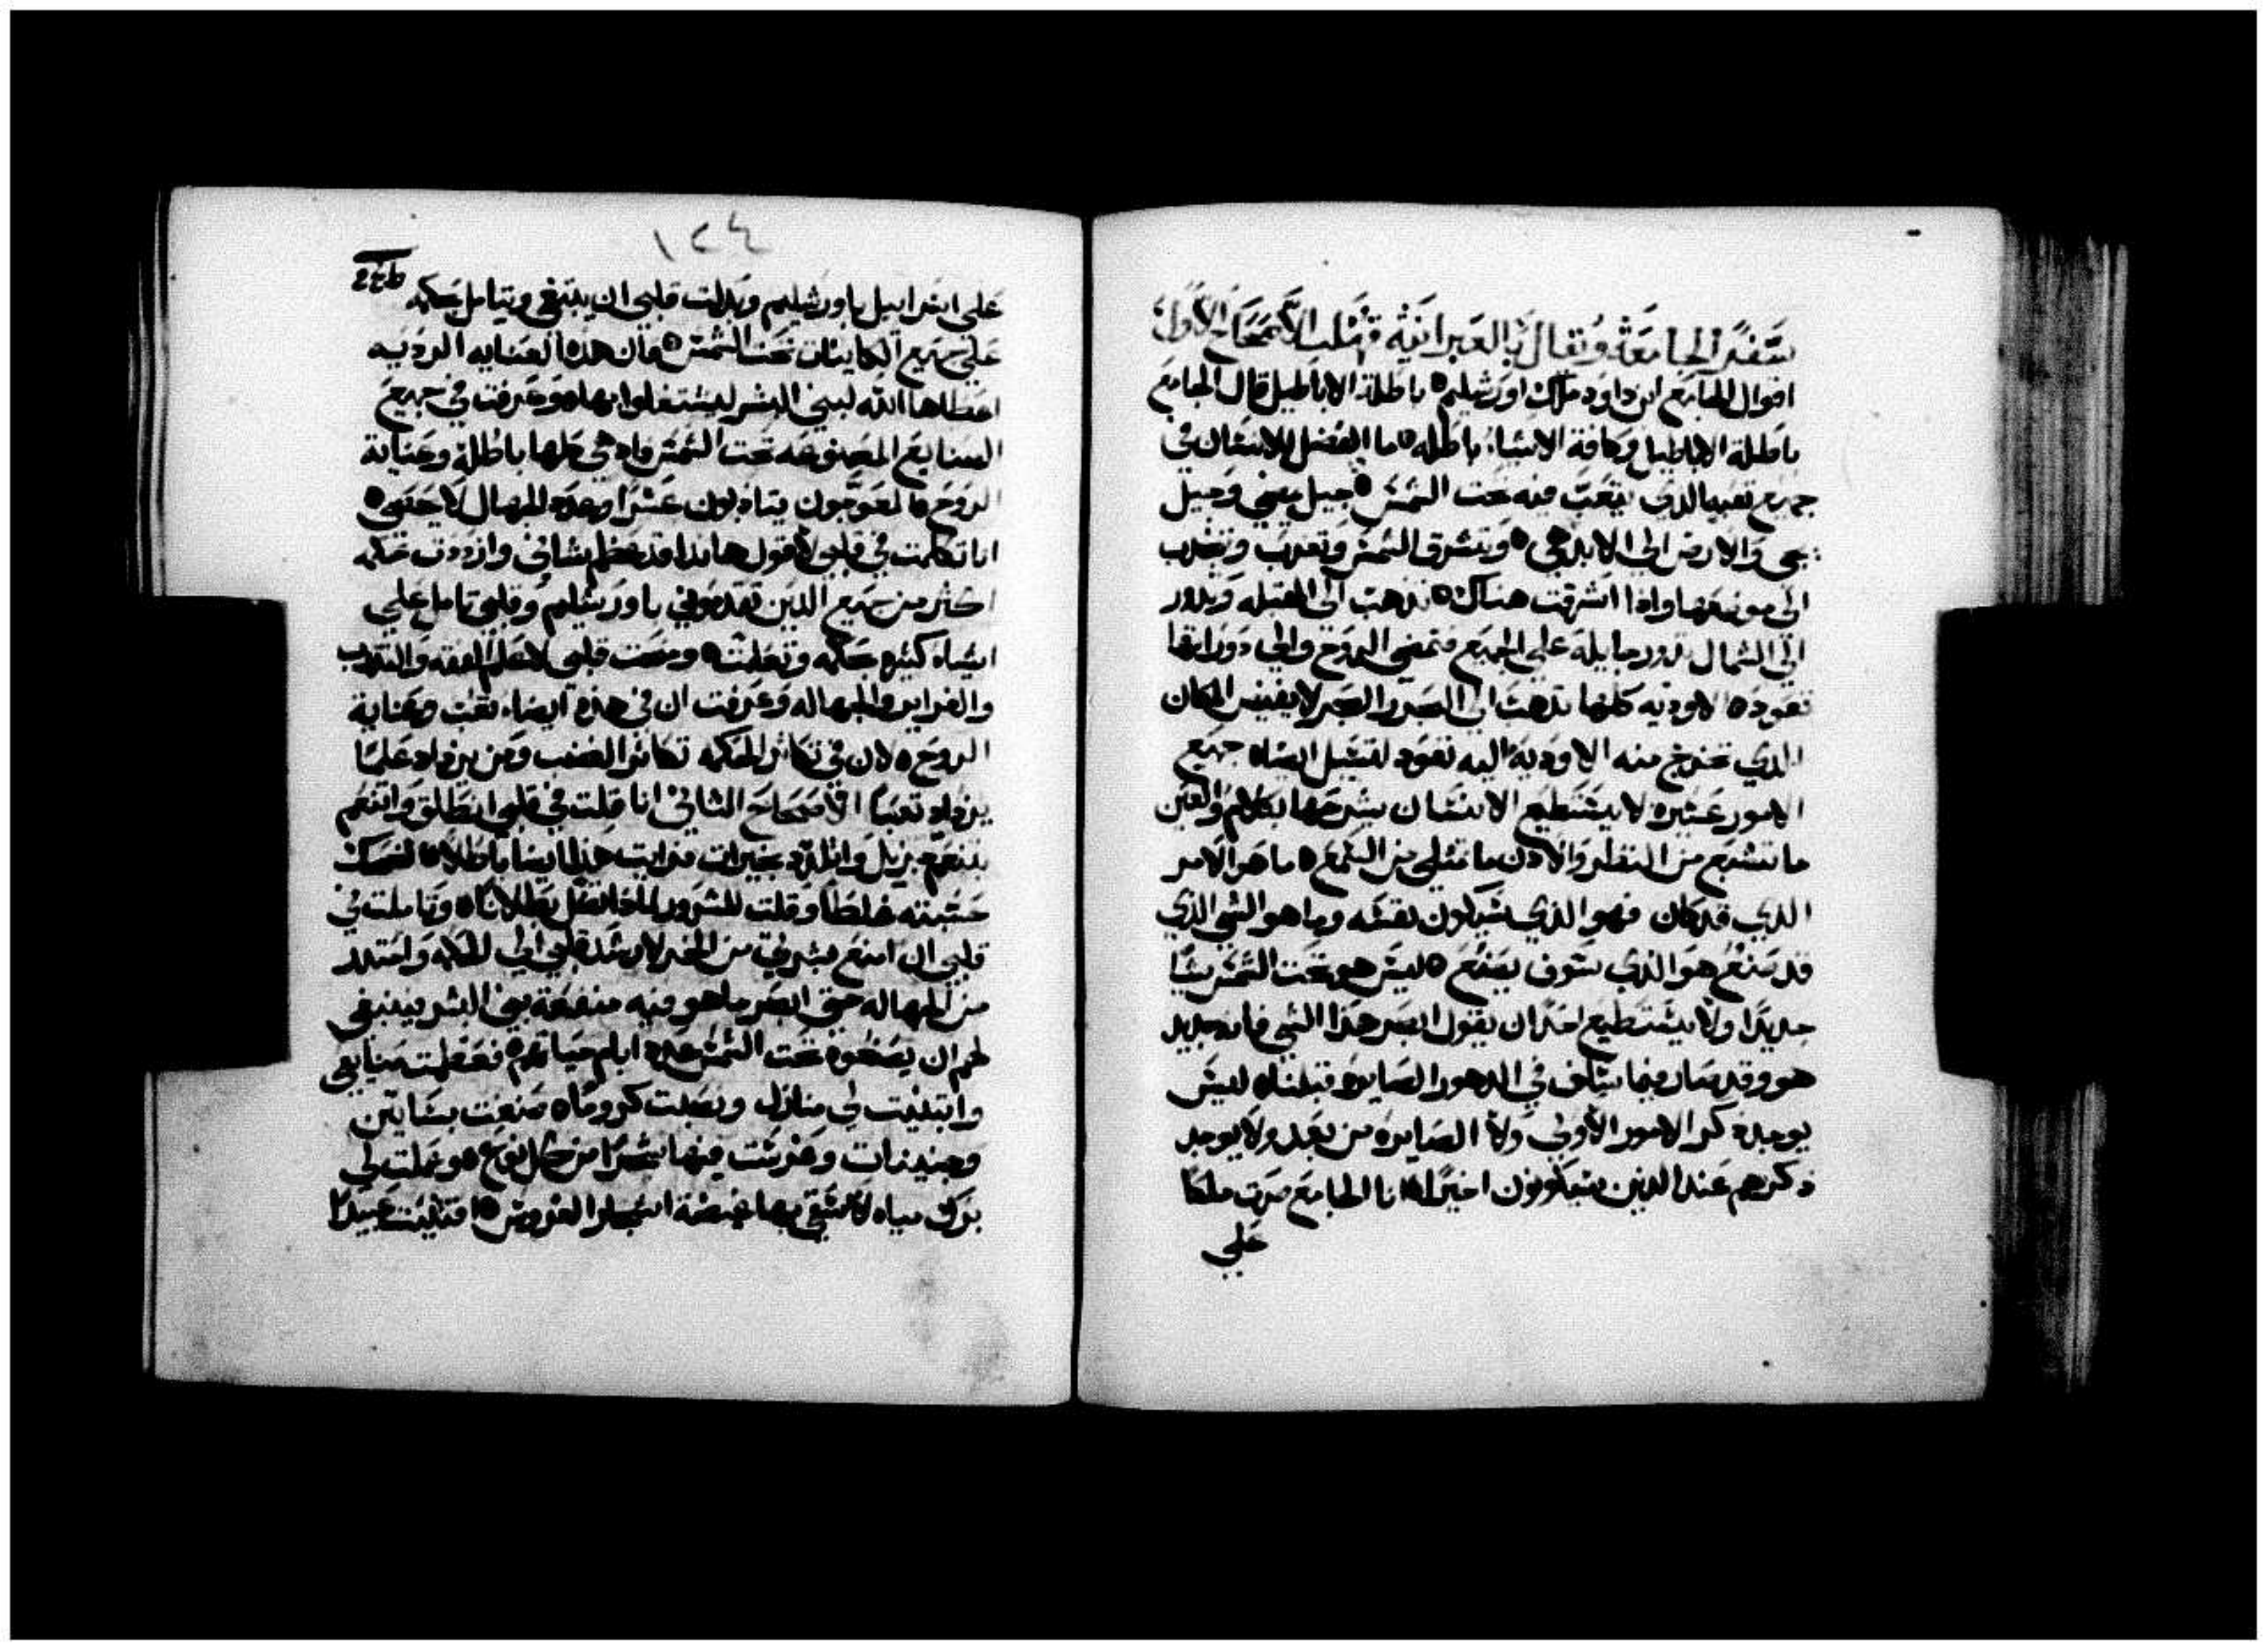 سفر الجامعة ويقال بالعبرانية قهلت الاصحاح الاول
اقوال الجامع ابن داود ملك اورشليم ه باطلة الاباطيل قال الجامع
باطلة الاباطيل وكافة الاشياء باطله ه ما الفضل للانسان في
جميع تعبه الذي يتعب فيه تحت الشمس ه جيل يمضي وجيل
يجي والارض الي الابد هي ه وتشرق الشمس وتغرب وتجذب
الي موضعها واذا اشرقت هناك ه تذهب الي القبله وتدور
الي الشمال تدور جايلة علي الجميع فتمضي الروح والي دورانها
تعود ه الاوديه كلها تذهب الي البحر والبحر لا يفيض المكان
الذي تخرج منه الاوديه اليه تعود لتسيل ايضاه جميع
الامور عسره لا يستطيع الانسان يشرحها بكلام والعين
ما تشبع من النظر والاذن ما تمتلي من السمع ه ما هو الامر
الذي قد كان فهو الذي سيكون نفسه وما هو الشي الذي
قد صنع هو الذي سوف يصنع ه ليس هو تحت الشمس شيا
جديدا ولا يستطيع احد ان يقول ابصر هذا الشي فانه جديد
هو وقد صار فيما سلف في الدهور الصايره قبلناه ليس
يوجد ذكر الامور الاولي ولا الصايره من بعد ولا يوجد
ذكرهم عند الذين سيكونون اخيرا ه انا الجامع صرت ملكا
علي
١٢٤
علي اسراييل باورشليم وبذلت قلبي ان يبتغي ويتامل بحكمه
علي جميع الكاينات تحت الشمس ه فان هذه العنايه الرديه
اعطاها الله لبني البشر ليشتغلوا بها ه وعرفت في جميع
الصنايع المصنوعه تحت الشمس فاذ هي كلها باطلة وعناية
الروح ه المعوجون يتادبون عسرا وعدد الجهال لا يحصي ه
انا تكلمت في قلبي لاقول هانذا قد عظم شاني وازددت حكمه
اكثر من جميع الذين تقدموني باورشليم وقلبي تامل علي
اشياء كثيره بحكمه وتعلمت ه ومنحت قلبي لاعلم الفقه والتهذيب
والغراير والجهاله وعرفت ان في هذه ايضاء تعب وعناية
الروح ه لان في تكاثر الحكمه تكاثر الغضب ومن يزداد علما
يزداد تعبا الاصحاح الثاني انا قلت في قلبي انطلق واتنعم
بتنعم جزيل واتلذذ بخيرات فرايت هذا ايضا باطلا ه الضحك
حسبته غلطا وقلت للسرور لماذا تضل بطلاناه وتاملت في
قلبي ان امنع بشرتي من الخمر لارشد قلبي الي الحكمه وابتعد
من الجهاله حتي ابصر ما هو فيه منفعة بني البشر ينبغي
لهم ان يصنعوه تحت الشمس عدد ايام حياتهم ه فعظمت صنايعي
وابتنيت لي منازل ونصبت كروماه صنعت بساتين
وجنينات وغرست فيها شجرا من كل نوع ه وعملت لي
برك مياه لاسقي بها غيضة اشجار الغروس ه اقتنيت عبيدا